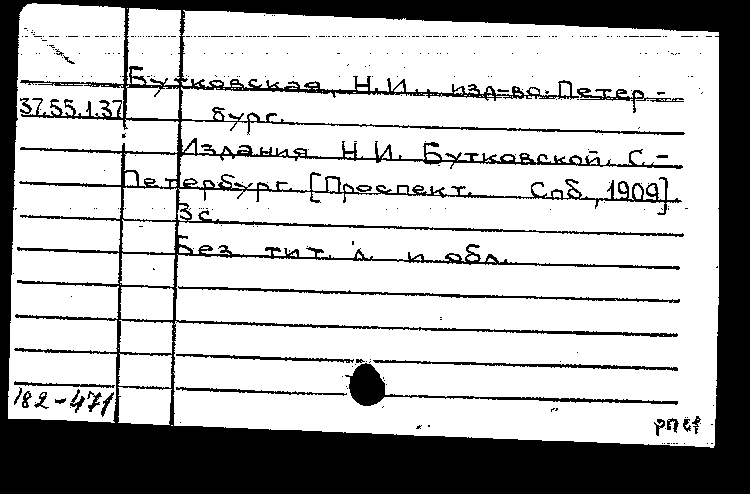 Бутковская, Н.И., изд-во. Петер-
37.55.1.37 бург.
Издания Н.И. Бутковской. С.-
Петербург. [Проспект. Спб., 1909].
3с.
Без тит. л. и обл.
182-471